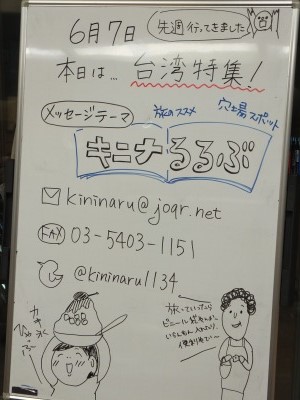 6月7日
先週行ってきました
本日は… 台湾特集!
メッセージテーマ
旅のススメ 穴場スポット
キニナるるぶ
kininaru@joqr.net
FAX 03-5403-1151
@kininaru1134
旅っていったら
ビニール袋
便利